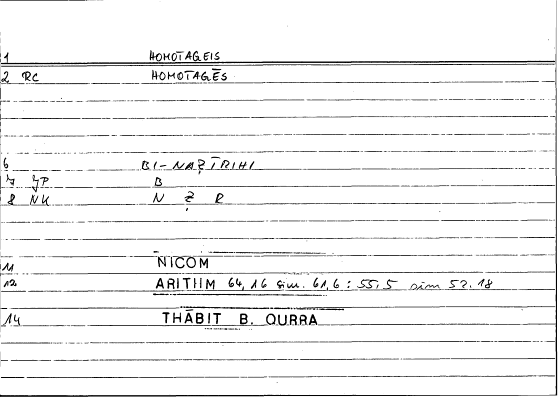 1 HOMOTAGEIS
2 RC HOMOTAGĒS
6 BI-NAẒĪRIHI
7 JP B
8 NK N Ẓ R
11 NICOM
12 ARITHM 64,16 sim. 61,6 : 55,5 sim 52.18
14 THĀBIT B. QURRA